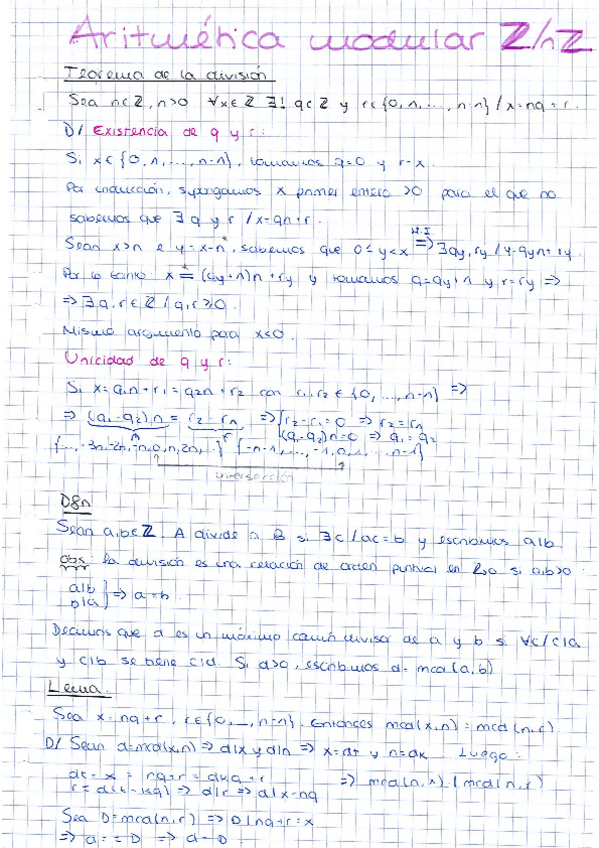 Aritmética modular Z/nZ
Teorema de la división
Sea n∈Z, n>0 ∀x∈Z ∃! q∈Z y r∈{0,1,...,n-1} / x=nq+r.
D/ Existencia de q y r:
Si x∈{0,1,...,n-1}, tomamos q=0 y r=x.
Por inducción, supongamos x primer entero >0 para el que no
sabemos que ∃ q y r / x=qn+r.
Sean x>n e y=x-n*, sabemos que 0≤y<x ⇒(H.I) ∃qy, ry / y=qyn+ry.
Por lo tanto x =* (qy+1)n+ry y tomamos q=qy+1 y r=ry ⇒
⇒ ∃ q,r∈Z / q,r≥0.
Mismo argumento para x<0.
Unicidad de q y r:
Si x=q1n+r1=q2n+r2 con r1,r2∈{0,...,n-1} ⇒
⇒ (q1-q2)n = r2-r1 ⇒ { r2-r1=0 ⇒ r2=r1
(q1-q2)n=0 ⇒ q1=q2
{...,-3n,-2n,-n,0,n,2n,...} {-n-1,...,-1,0,1,...,n-1}
intersección
Dfn
Sean a,b∈Z. A divide a B si ∃c / ac=b y escribimos a|b
obs: La división es una relación de orden puntual en Z≥0 si a,b>0:
a|b
b|a } ⇒ a=b
Decimos que d es un máximo común divisor de a y b si ∀c / c|a
y c|b se tiene c|d. Si d>0, escribimos d=mcd(a,b)
Lema.
Sea x=nq+r, r∈{0,...,n-1}. Entonces mcd(x,n)=mcd(n,r).
D/ Sean d=mcd(x,n) ⇒ d|x y d|n ⇒ x=dt y n=dk Luego:
dt = x = nq+r = dkq+r
r = d(t-kq) ⇒ d|r ⇒ d|x-nq ⇒ mcd(n,x)|mcd(n,r)
Sea D=mcd(n,r) ⇒ D|nq+r=x
⇒ d = D